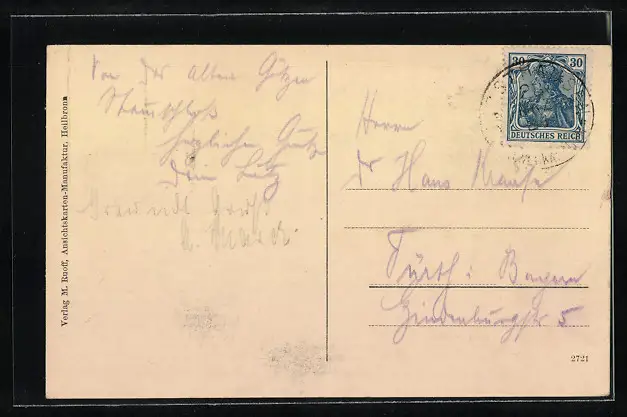 Von der alten Götzen
Stammschloß
herzlichen Gruß
Dein Fritz
Gruß
Verlag M. Ruoff, Ansichtskarten-Manufaktur, Heilbronn
30 30
DEUTSCHES REICH
Herrn
Dr Hans
Fürth i Bayern
Hindenburgstr 5
2721